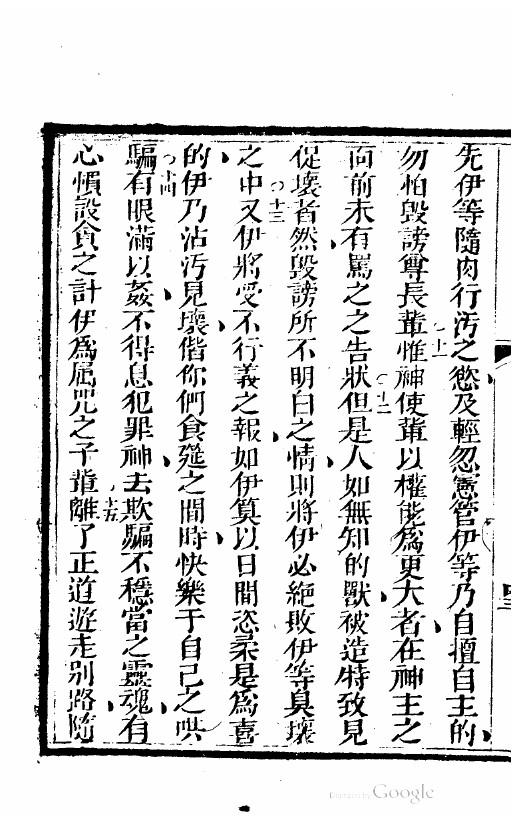 先伊等隨肉行汚之慾及輕忽憲管伊等乃自擅自主的
勿怕毀謗尊長輩十一惟神使輩以權能爲更大者在神主之
面前未有罵之之告狀十二但是人如無知的獸被造特致見
促壞者然毀謗所不明白之情則將伊必絕敗伊等臭壞
之中十三又伊將受不行義之報如伊算以日間恣柔是爲喜
的伊乃沾汚見壞偕你們食筵之間時快樂于自己之哄
騙十四有眼滿以姦不得息犯罪神去欺騙不穩當之靈魂有
心慣設貪之計伊爲屬咒之子輩十五離了正道遊走別路隨
Digitized by Google